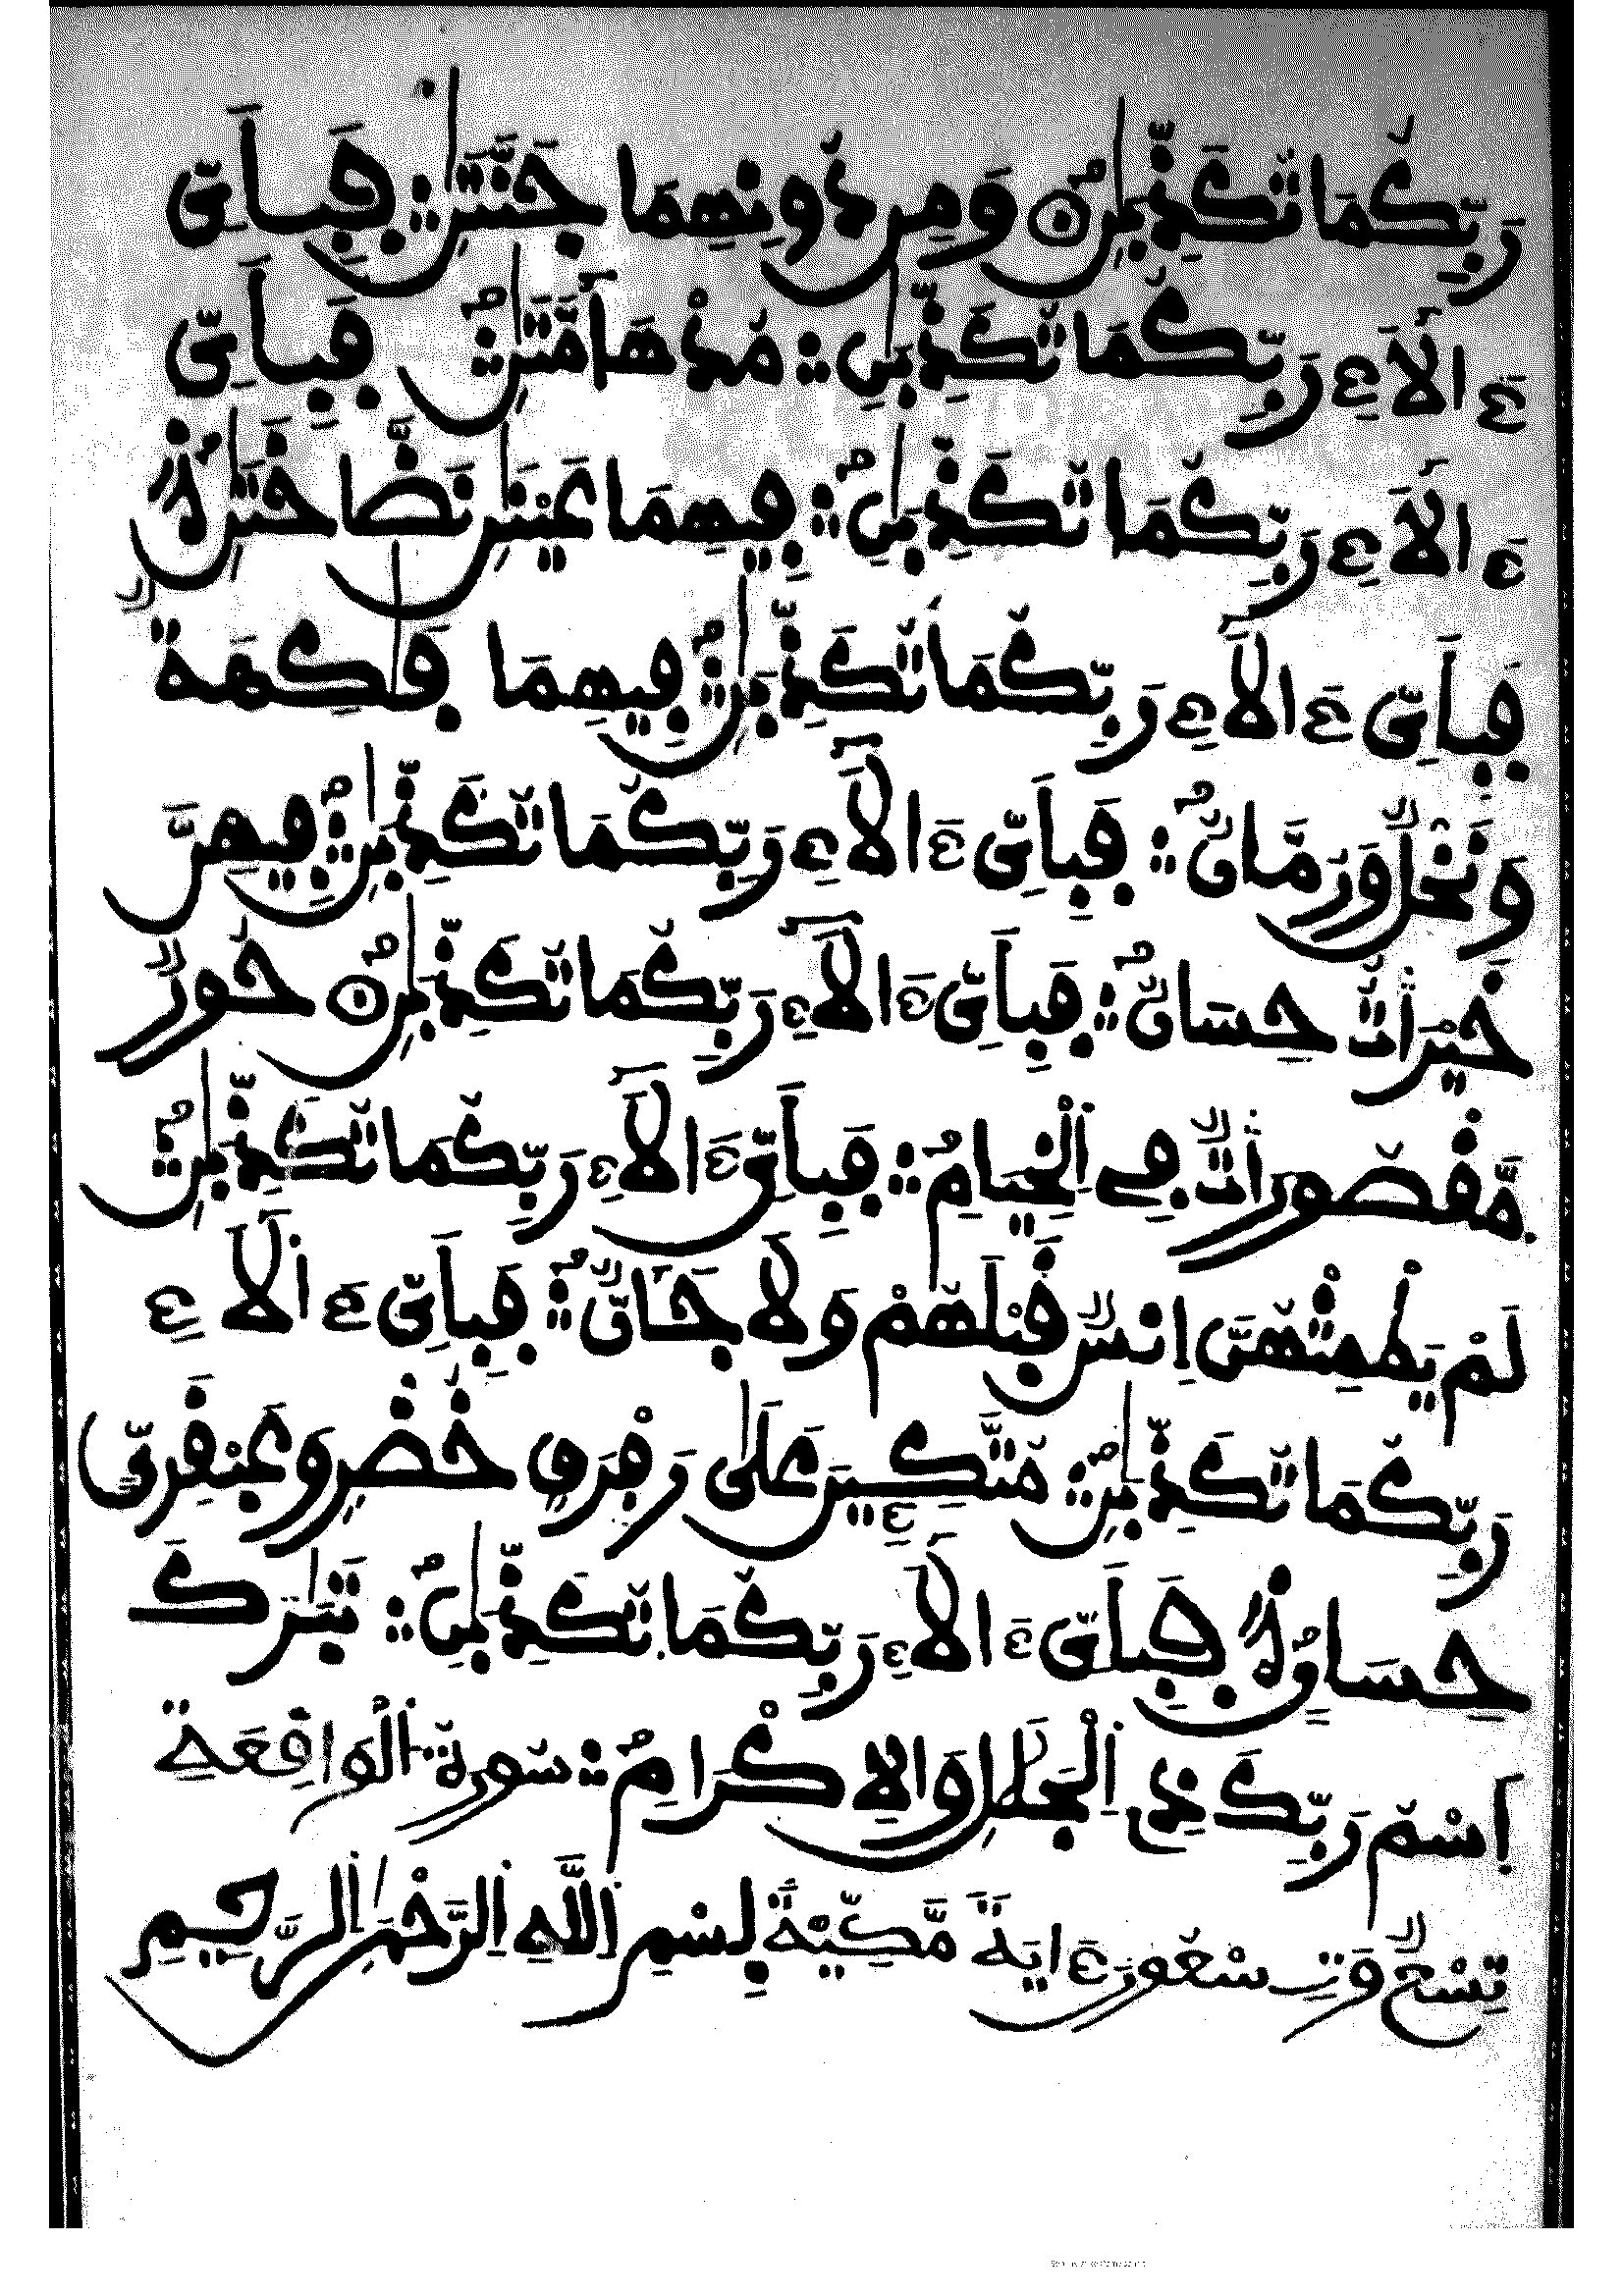 رَبِّكُمَا تُكَذِّبَٰنِ وَمِن دُونِهِمَا جَنَّتَٰنِ فَبِأَىِّ
ءَالَآءِ رَبِّكُمَا تُكَذِّبَٰنِ مُدْهَآمَّتَٰنِ فَبِأَىِّ
ءَالَآءِ رَبِّكُمَا تُكَذِّبَٰنِ فِيهِمَا عَيْنَٰنِ نَضَّاخَتَٰنِ
فَبِأَىِّ ءَالَآءِ رَبِّكُمَا تُكَذِّبَٰنِ فِيهِمَا فَٰكِهَةٌ
وَنَخْلٌ وَرُمَّانٌ فَبِأَىِّ ءَالَآءِ رَبِّكُمَا تُكَذِّبَٰنِ فِيهِنَّ
خَيْرَاتٌ حِسَانٌ فَبِأَىِّ ءَالَآءِ رَبِّكُمَا تُكَذِّبَٰنِ حُورٌ
مَّقْصُورَاتٌ فِے اِ۬لْخِيَامِ فَبِأَىِّ ءَالَآءِ رَبِّكُمَا تُكَذِّبَٰنِ
لَمْ يَطْمِثْهُنَّ إِنسٌ قَبْلَهُمْ وَلَا جَآنٌّ فَبِأَىِّ ءَالَآءِ
رَبِّكُمَا تُكَذِّبَٰنِ مُتَّكِـِٕينَ عَلَىٰ رَفْرَفٍ خُضْرٍ وَعَبْقَرِىٍّ
حِسَانٍ فَبِأَىِّ ءَالَآءِ رَبِّكُمَا تُكَذِّبَٰنِ تَبَٰرَكَ
اَ۪سْمُ رَبِّكَ ذِى اِ۬لْجَلَٰلِ وَالْإِكْرَامِ سُورَةُ الْوَاقِعَةِ
تِسْعٌ وَتِسْعُونَ ءَايَةً مَّكِّيَّةٌ بِسْمِ اللَّهِ الرَّحْمَٰنِ الرَّحِيمِ